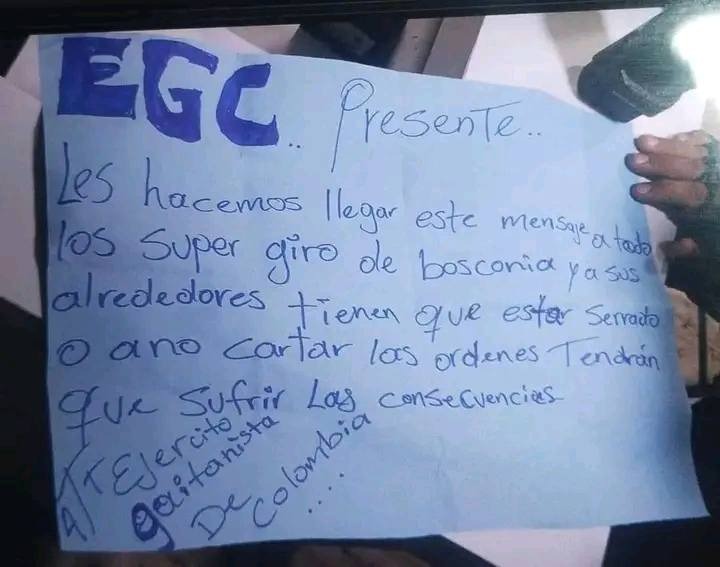 EGC.. Presente..
Les hacemos llegar este mensaje a todo
los super giro de bosconia y a sus
alrededores tienen que estar serrado
o ano cartar las ordenes Tendrán
que sufrir Las consecuencias
ATT Ejercito
gaitanista
De colombia
....